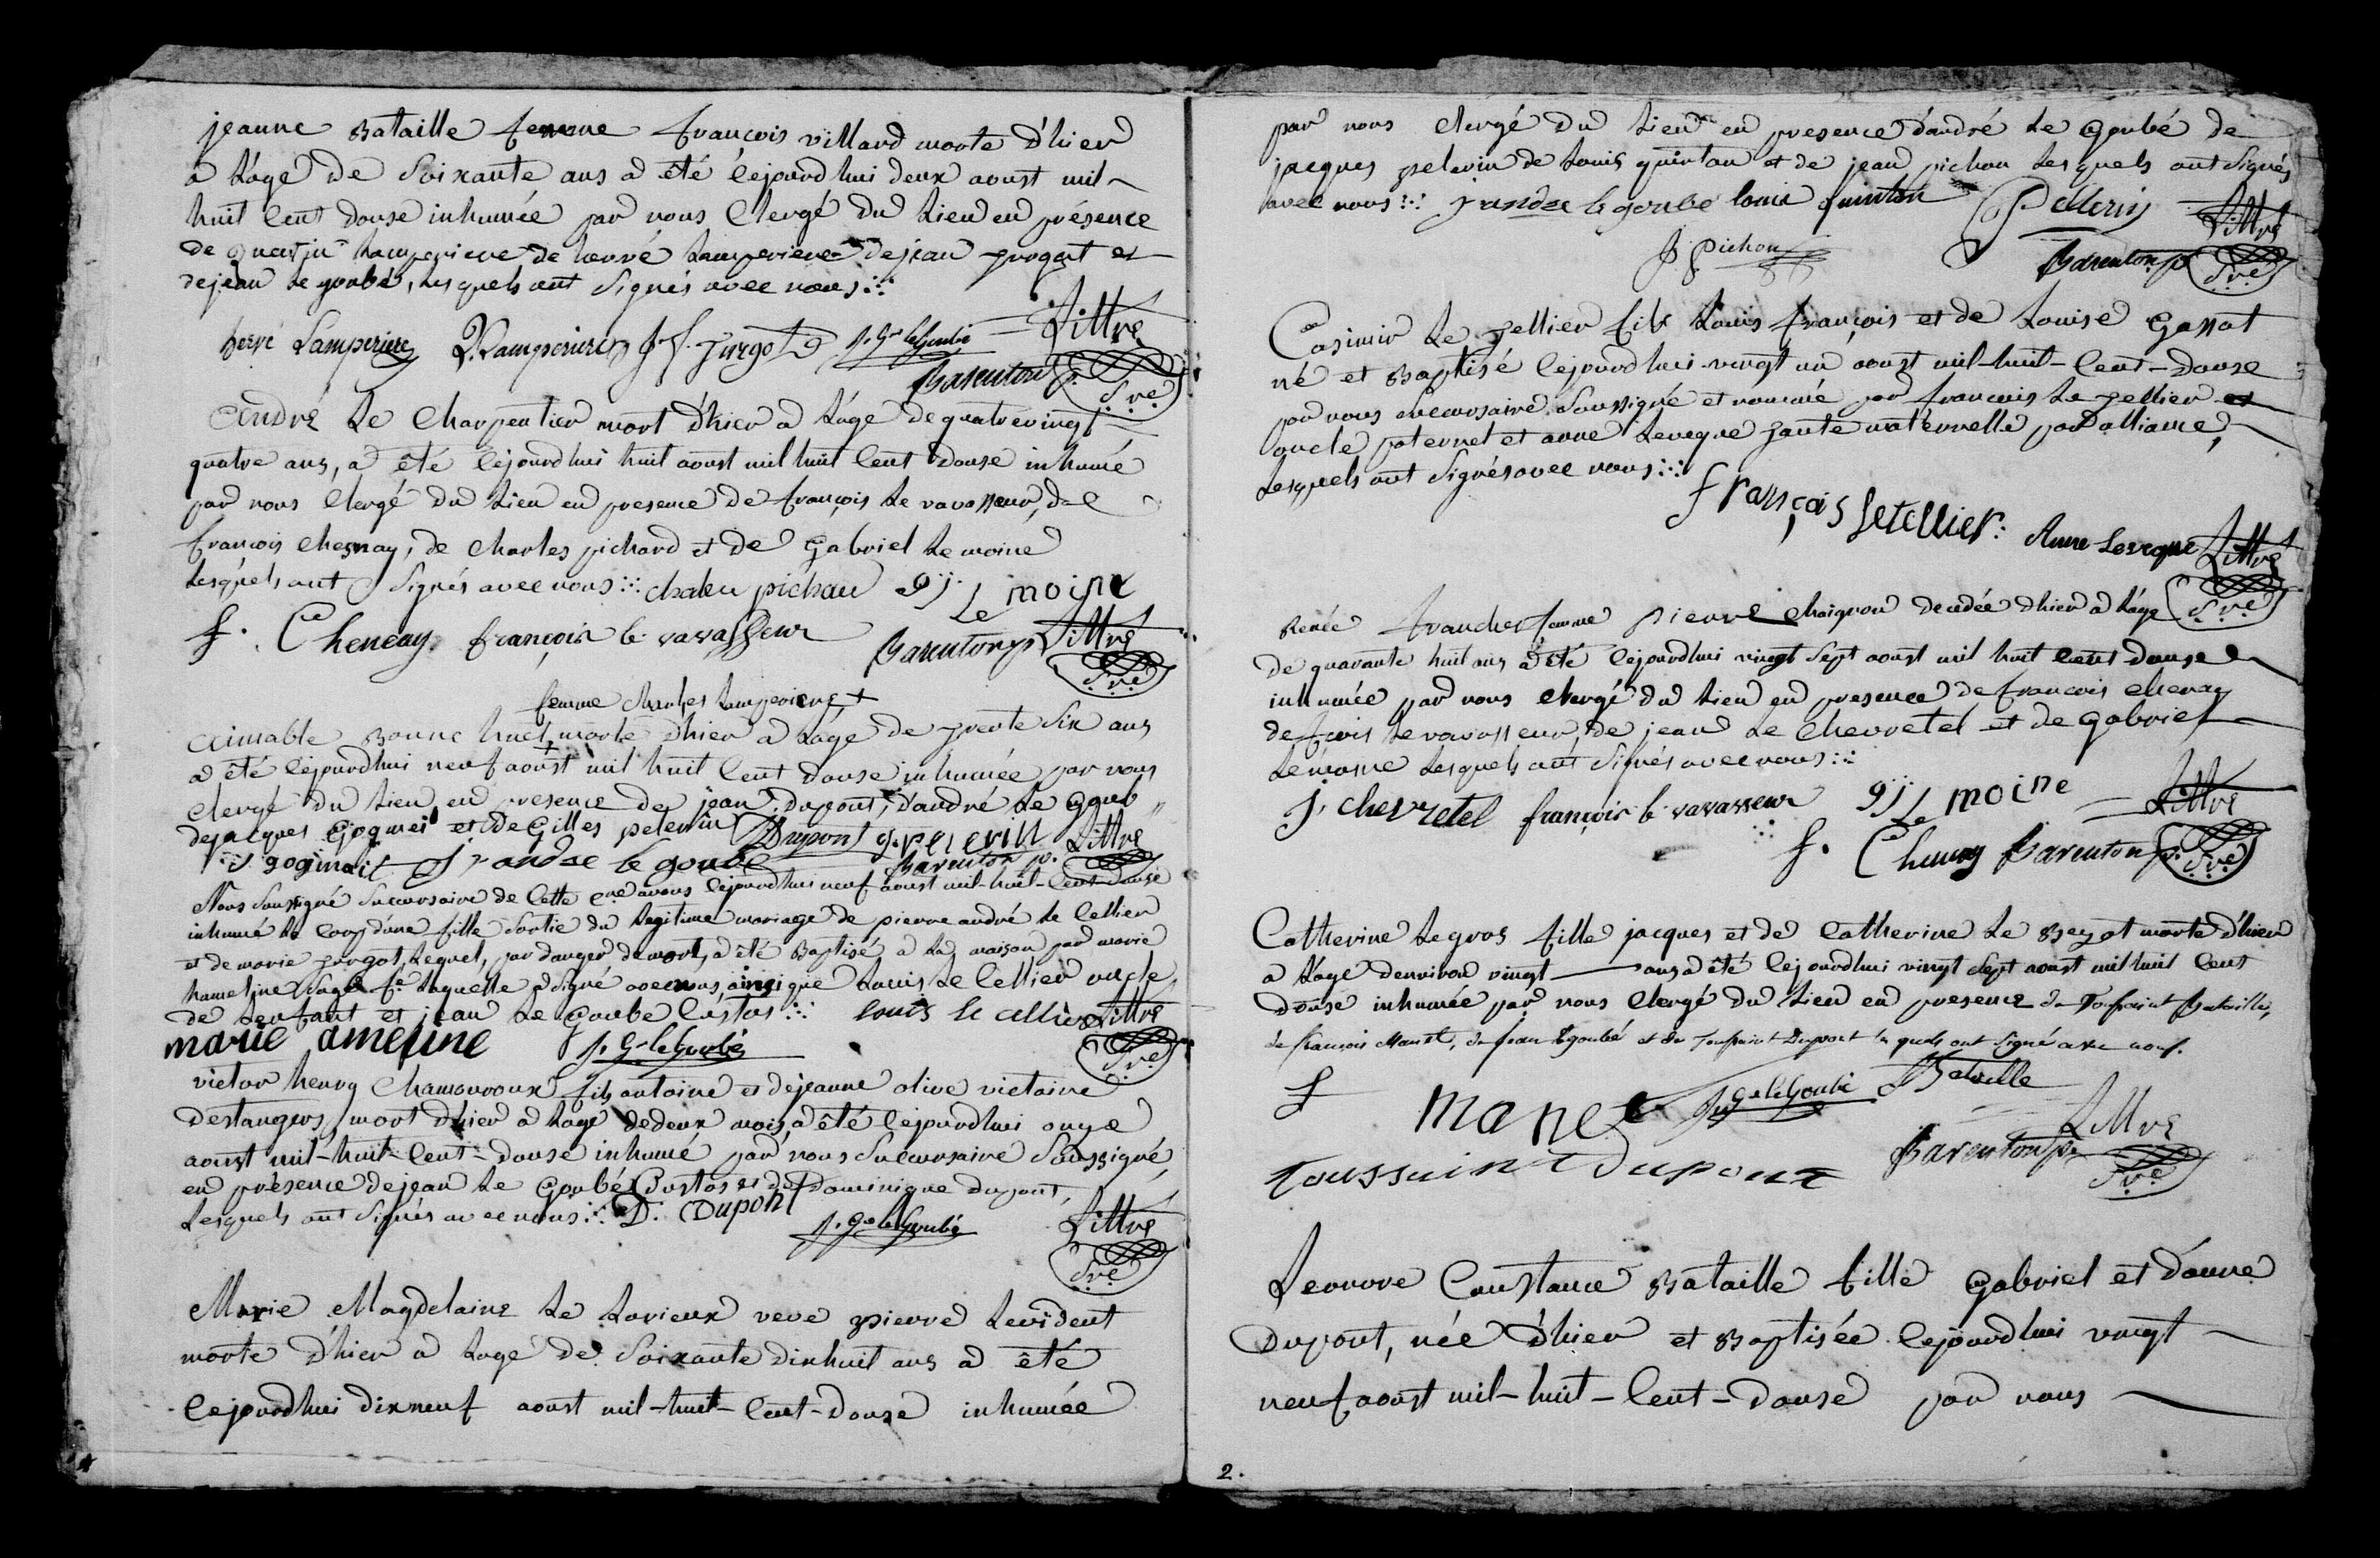 jeanne Bataille femme françois villard morte d'hier
a l'âge de soixante ans a été cejourd'hui deux aoust mil
huit cent douse inhumée par nous clergé du lieu en présence
de lamperiere de hervé lamperiere de jean jurgot et
de jean le goubé, lesquels ont signés avec nous
hervé Lamperiere Lamperiere J f. jurgot j. Gn leGoubé Littré
Barenton p. sre
André le Charpentier mort d'hier a l'âge de quatrevingt
quatre ans, a été cejourd'hui huit aoust mil huit cent douse inhumé
par nous clergé du lieu en presence de françois le vavasseur, de
françois chesnay, de charles pichard et de Gabriel le moine
lesquels ont signés avec nous pichau Le moine
f. Chenay françois le vavasseur Barenton p. Littré
sre
femme charles lamperiere +
aimable Bonne huet morte d'hier a l'âge de trente six ans
a été cejourd'hui neuf aoust mil huit cent douse inhumée par nous
clergé du lieu en presence de jean Dupont, d'andré le Goub
de jacques et de Gilles pelerin Dupont g. pelerin Littré
j andre le goubé Barenton p.
Nous soussigné succursaire de cette cne avons cejourd'hui neuf aoust mil-huit-cent-douse
inhumé le corp d'une fille sortie du legitime mariage de pierre andré le Cellier
et de marie jurgot, lequel, par danger de mort, a été Baptisé a la maison par marie
hameline sage fe laquelle a signé avec nous, ainsi que Louis le Cellier oncle
de l'enfant et jean le Goubé Custos louis le cellier Littré
marie ameline j. Gn leGoubé sre
victor henry Chamouroux fils antoine et de jeanne olive victoire
Destangers, mort d'hier a l'age de deux mois, a été cejourd'hui onze
aoust mil-huit-cent-douse inhumé par nous succursaire soussigné,
en présence de jean le Goubé Custos et de Dominique dupont,
lesquels ont signés avec nous D. Dupont
j. Gn leGoubé Littré
sre
Marie Magdelaine le Lorieux veve pierre levident
morte d'hier a l'age de soixante dixhuit ans a été
cejourd'hui dixneuf aoust mil-huit-cent-douse inhumée
par nous clergé du lieu en presence d'andré le Goubé de
jacques pelerin de louis quinton et de jean pichon lesquels ont signés
avec nous j andre le goubé louis quinton Pellerin Littré
J pichon Barenton p. sre
Casimir le tellier fils Louis françois et de Louise Gassot
né et Baptisé cejourd'hui vingt un aoust mil-huit-cent-douse
par nous succursaire soussigné et nommé par françois le tellier
oncle paternel et anne leveque tante maternelle par alliance,
lesquels ont signés avec nous
françois letellier Anne Leveque Littré
sre
Renée femme pierre Chaignon decedée d'hier a l'âge
de quarante huit ans a été cejourd'hui vingt sept aoust mil huit cent douse
inhumée par nous clergé du lieu en presence de françois chenay
de fçois le vavasseur, de jean le Chevretel et de Gabriel
le moine lesquels ont signés avec nous
j chevretel françois le vavasseur Le moine Littré
f. Chenay Barenton p. sre
Catherine Legros fille jacques et de Catherine le morte d'hier
a l'age d'environ vingt ans a été cejourd'hui vingt sept aoust mil huit cent
douse inhumée par nous clergé du lieu en presence de Toussaint Bataille,
de françois Manet, de jean le goubé et de Toussaint Dupont les quels ont signé avec nous.
f manet j. Gn leGoubé Bataille
Littré
Toussaint Dupont Barenton p.
sre
Leonore Constance Bataille fille Gabriel et d'anne
Dupont, née d'hier et Baptisée cejourd'hui vingt
neuf aoust mil-huit-cent-douse par nous
2.